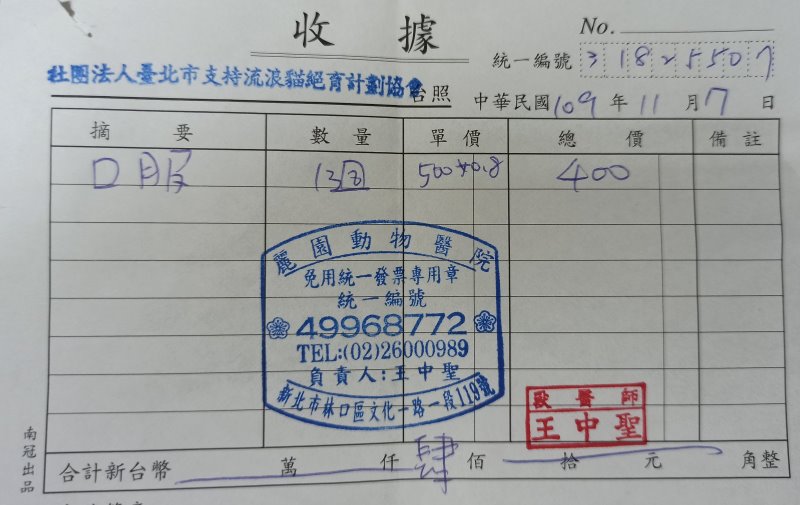 收據
No.
統一編號 31825507
社團法人臺北市支持流浪貓絕育計劃協會 台照
中華民國109年11月7日
摘要 數量 單價 總價 備註
口服 500×0.8 400
麗園動物醫院
免用統一發票專用章
統一編號
49968772
TEL:(02)26000989
負責人:王中聖
新北市林口區文化一路一段119號
獸醫師
王中聖
合計新台幣 萬 仟 肆 佰 拾 元 角整
南冠出品